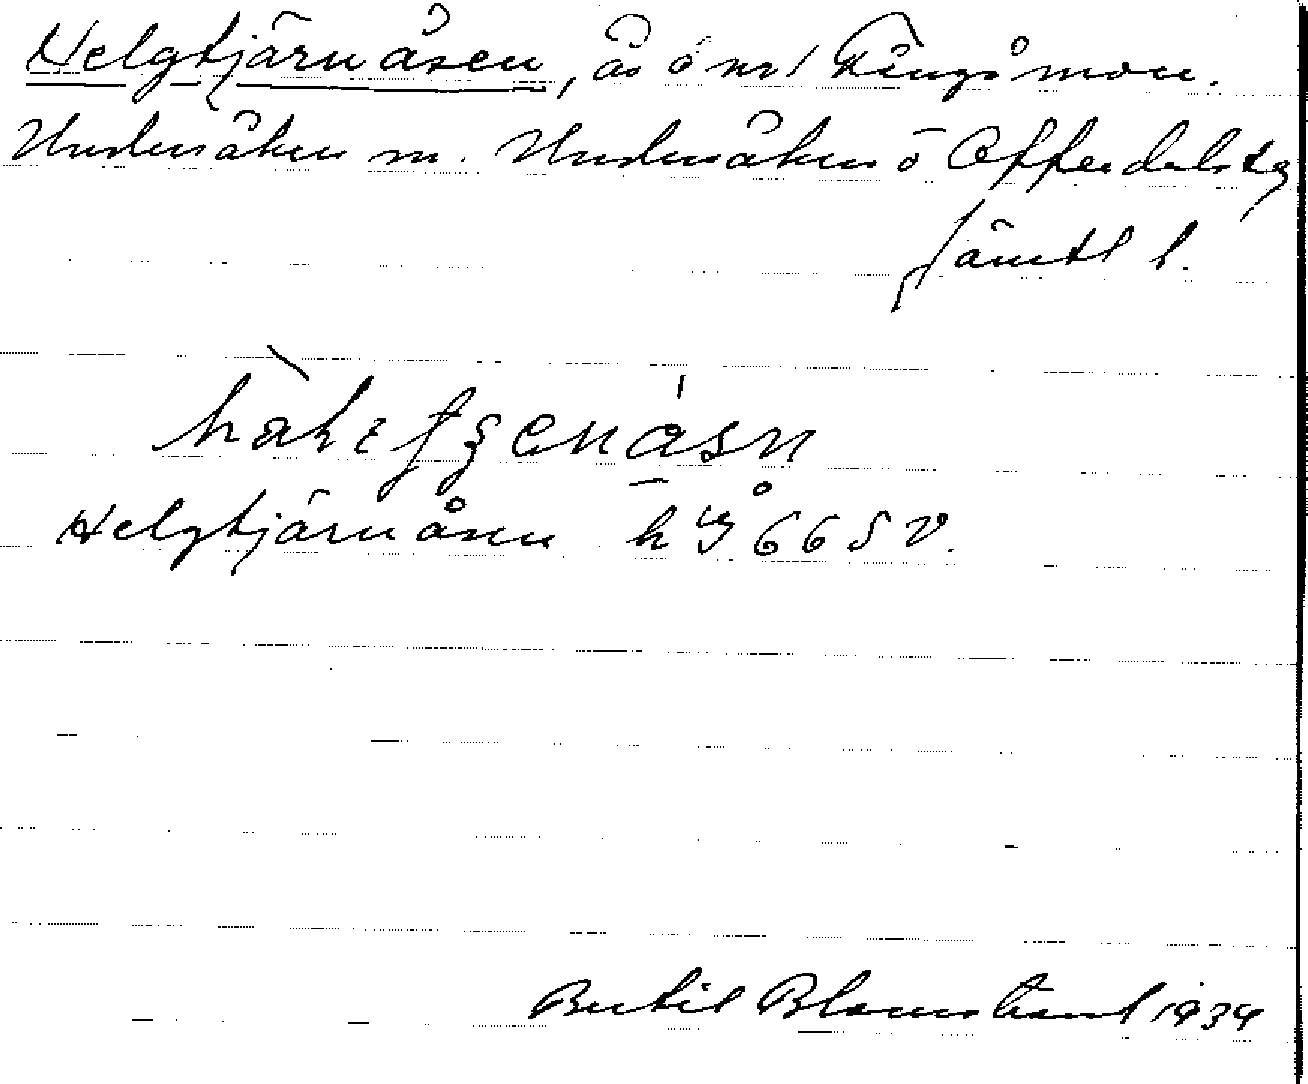 Helgtjärnåsen, ås ö nr 1 Fångåmon.
Undersåker sn. Undersåker o Offerdals tg
Jämtl l.
Helgtjärnåsen h 665 v.
Bertil Blomstrand 1934